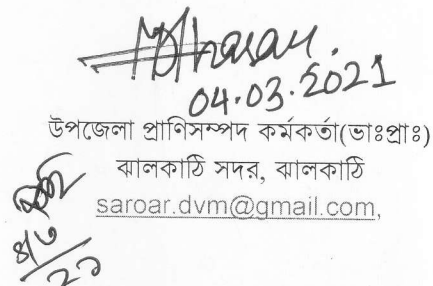 04.03.2021
উপজেলা প্রাণিসম্পদ কর্মকর্তা(ভাঃপ্রাঃ)
ঝালকাঠি সদর, ঝালকাঠি
saroar.dvm@gmail.com,